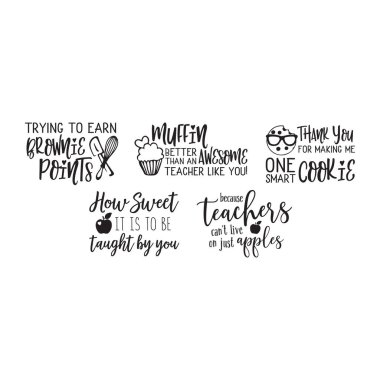 TRYING TO EARN
BROWNIE
POINTS
MUFFIN
BETTER
THAN AN AWESOME
TEACHER LIKE YOU!
THANK YOU
FOR MAKING ME
ONE
SMART COOKIE
How Sweet
IT IS TO BE
taught by you
because
teachers
can't live
on just apples